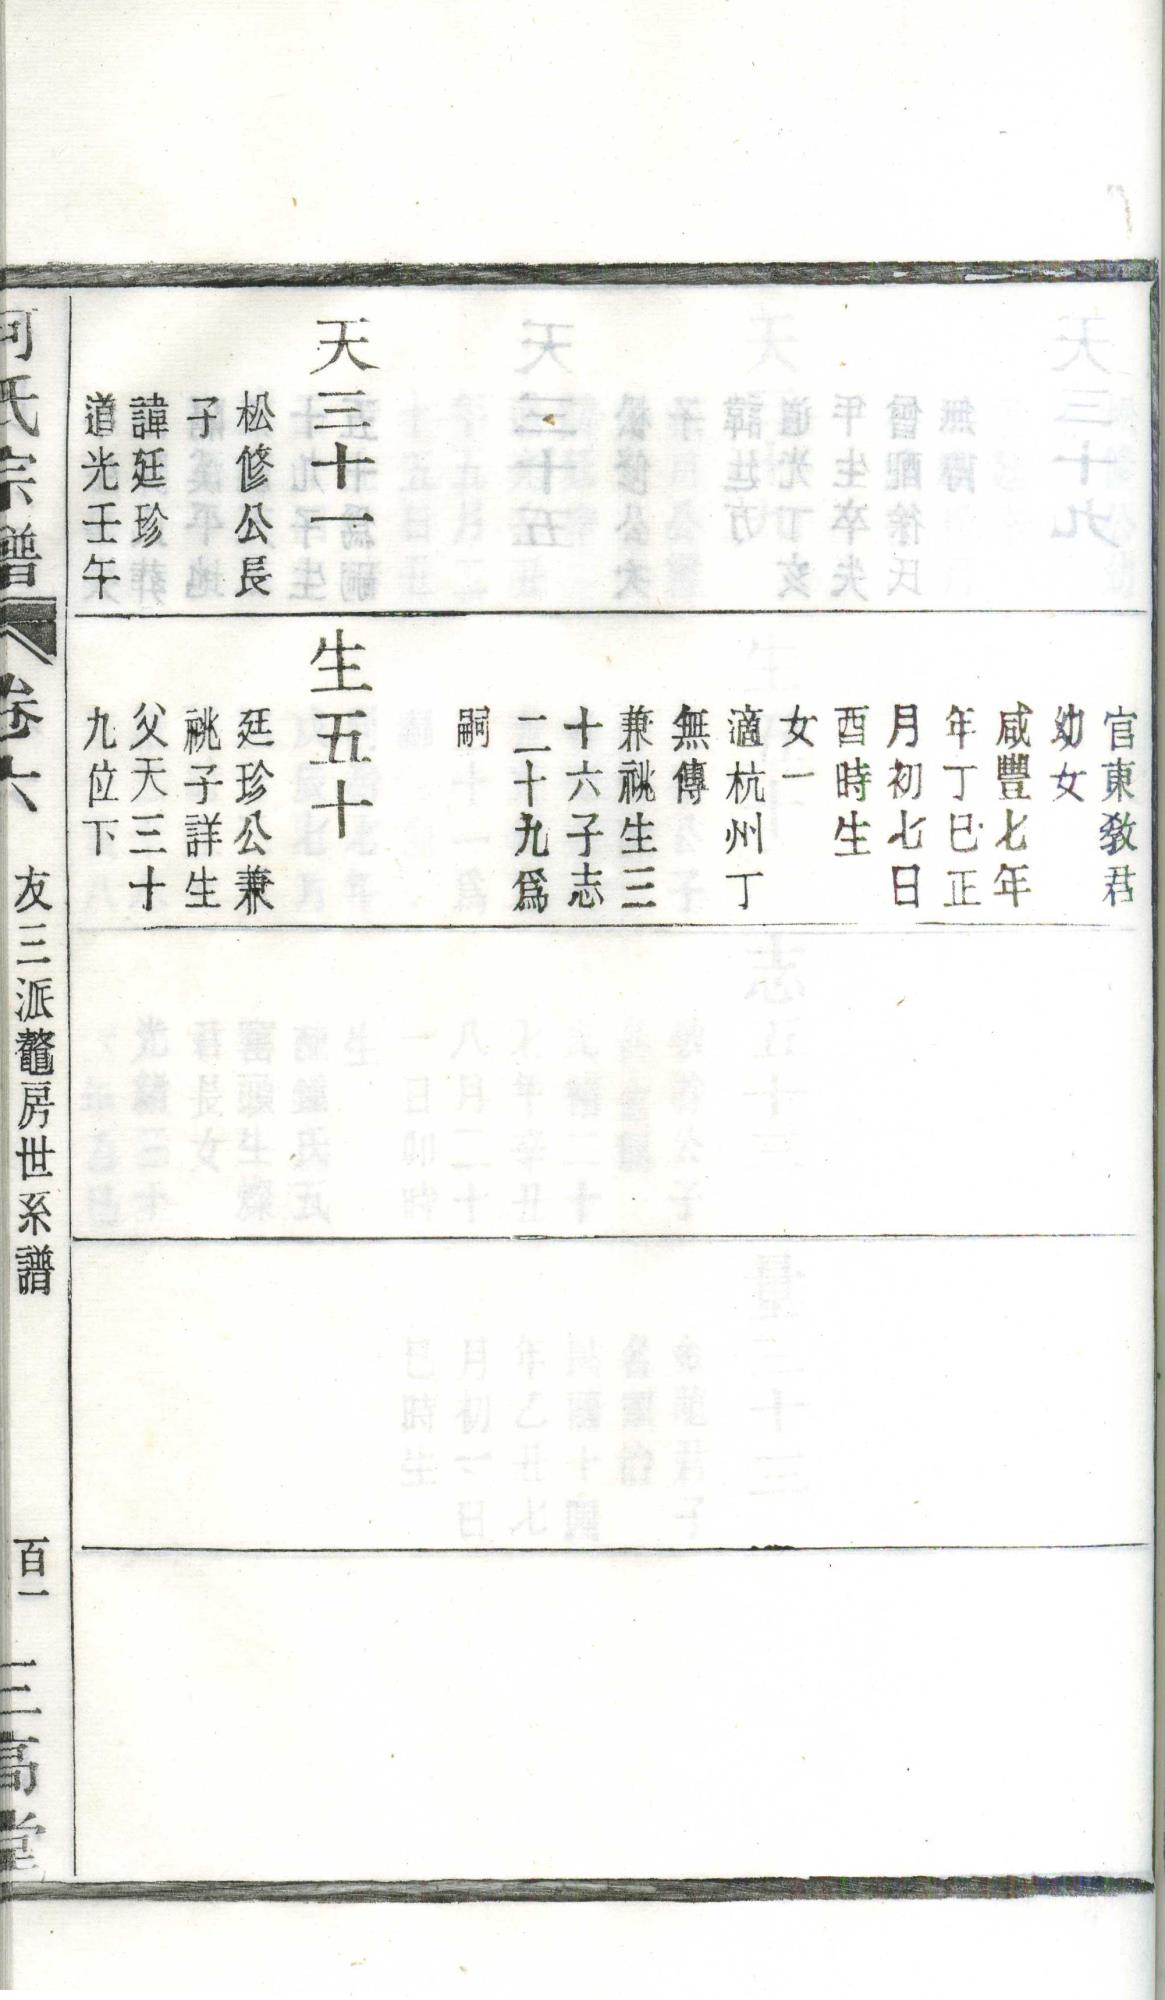 天三十一
松修公長
子
諱廷珍
道光壬午
官東教君
幼女
咸豐七年
年丁巳正
月初七日
酉時生
女一
適杭州丁
無傳
兼祧生三
十六子志
二十九爲
嗣
生五十
廷珍公兼
祧子詳生
父天三十
九位下
何氏宗譜
卷六
友三派鼇房世系譜
百一
三高堂